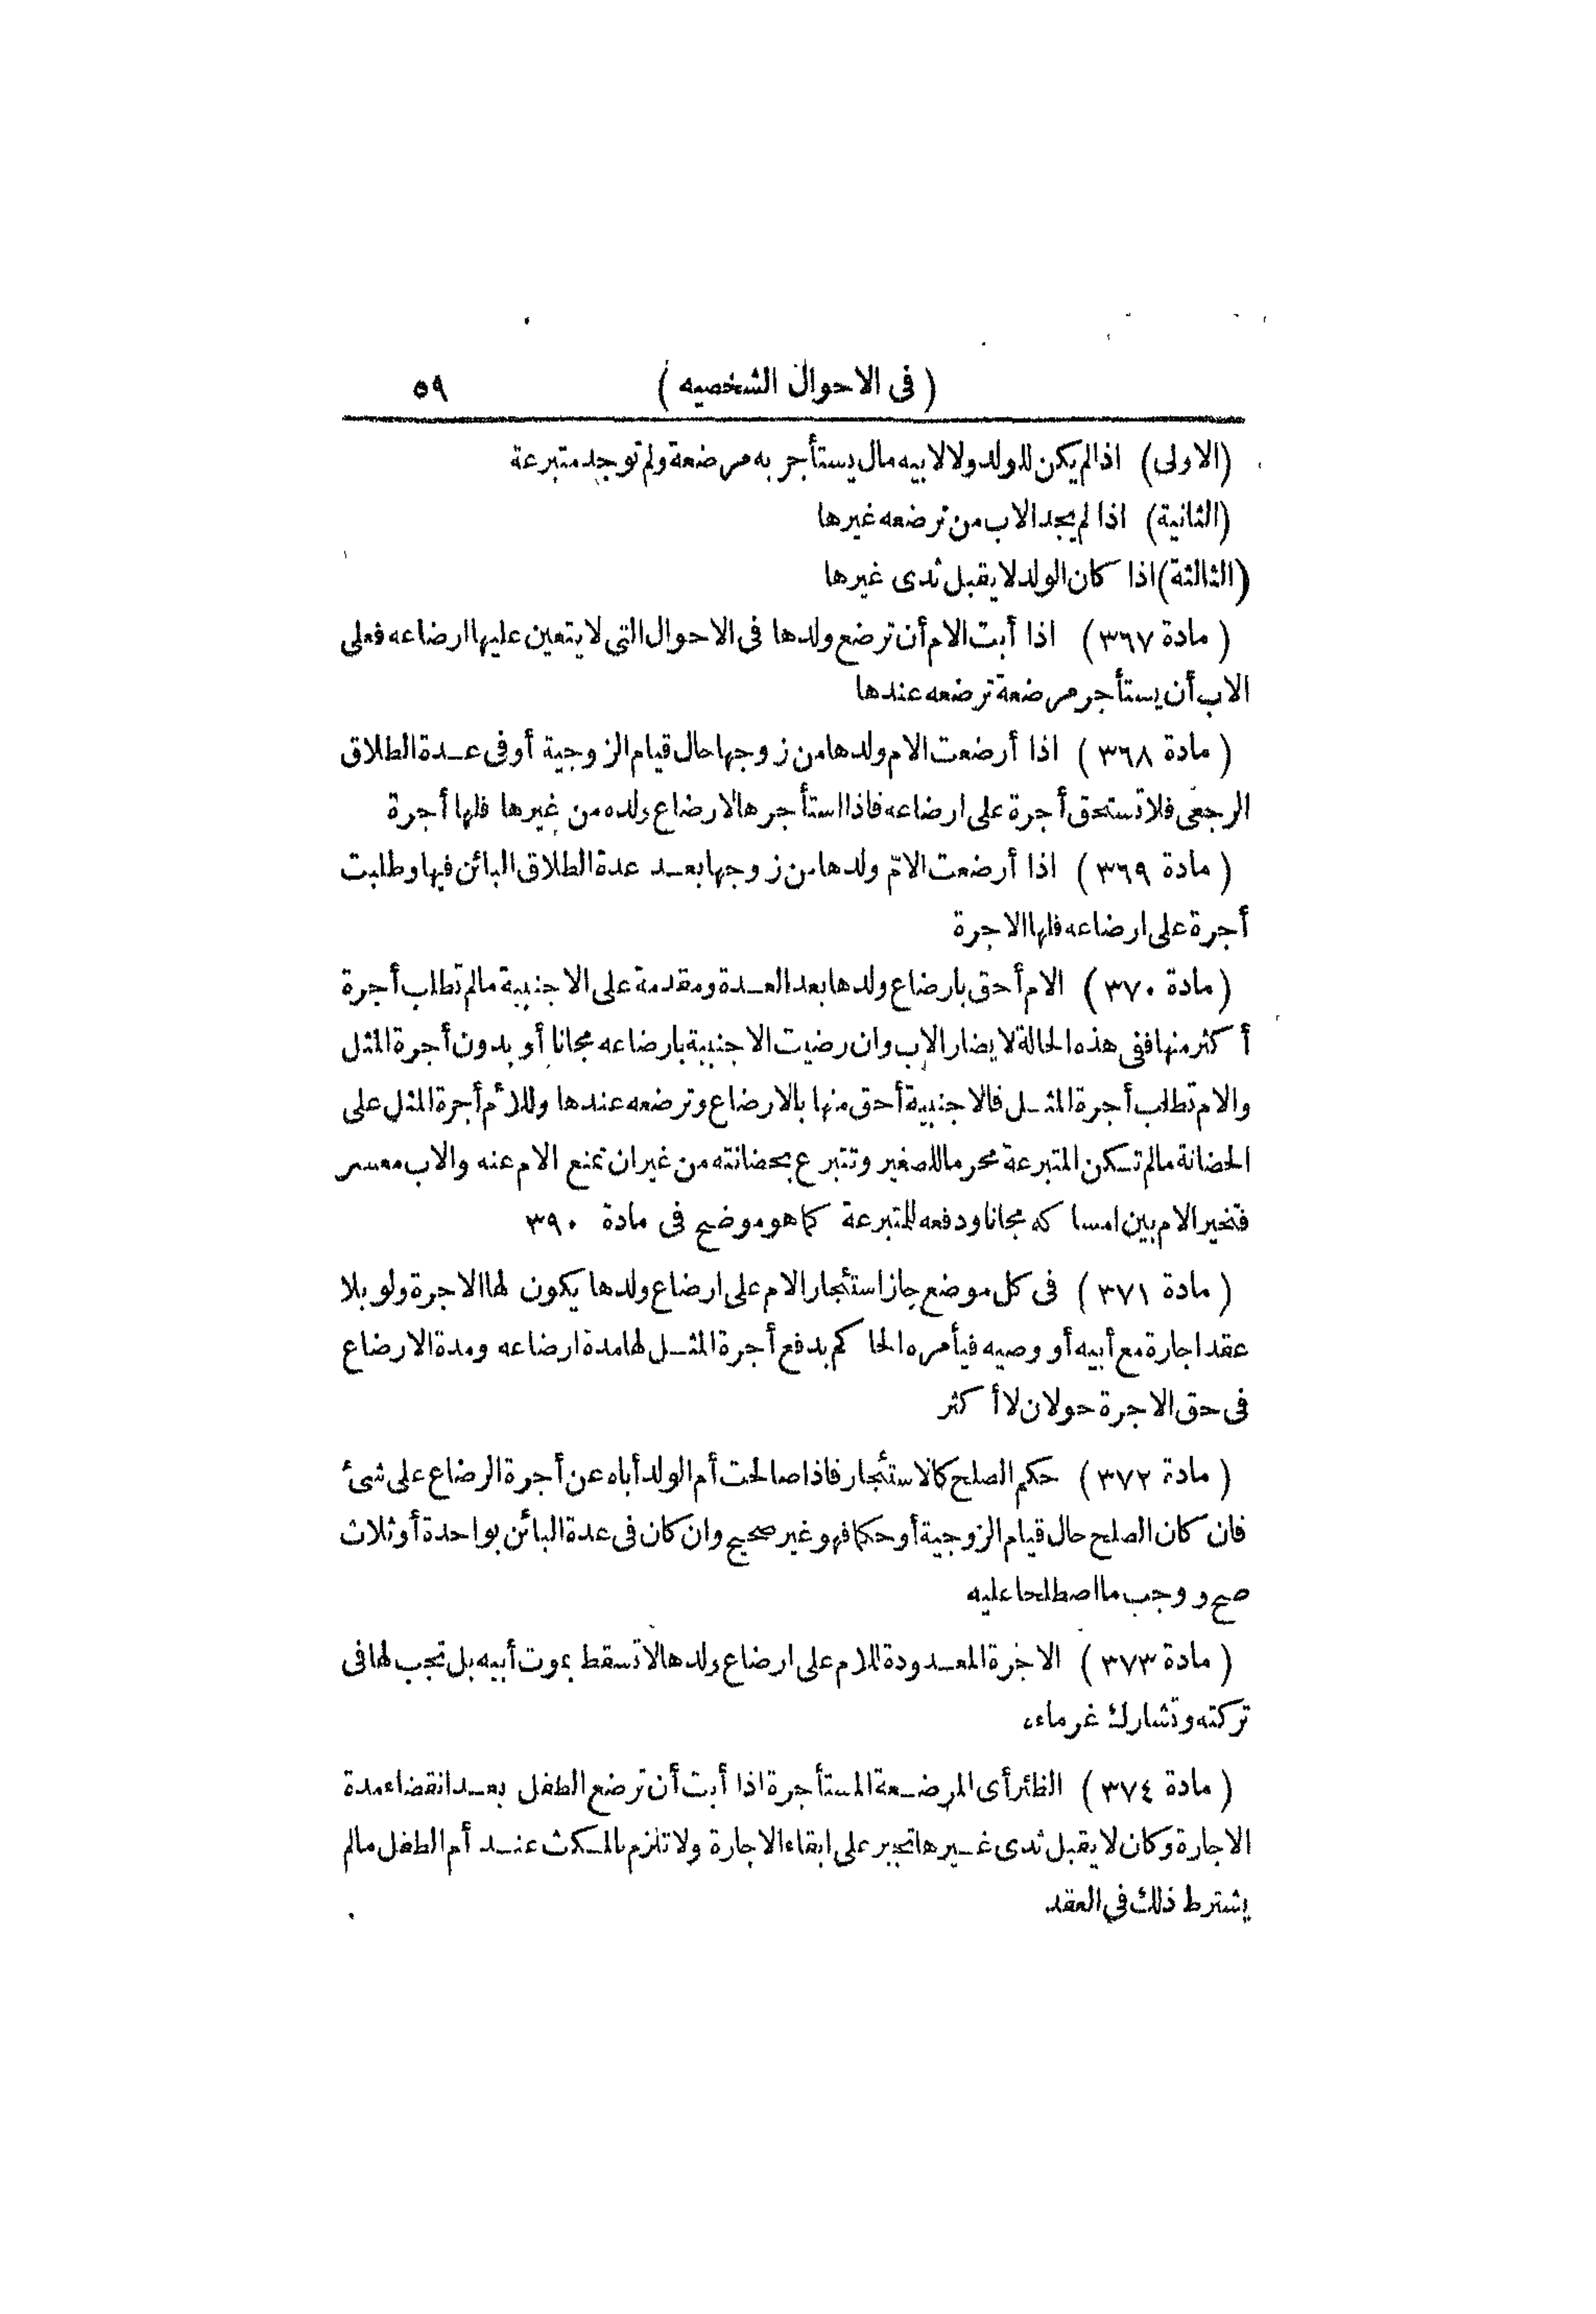 ( فى الاحوال الشخصيه ) ٥٩
(الاولى) اذا لم يكن للولد ولا لابيه مال يستأجر به مرضعة ولم توجد متبرعة
(الثانية) اذا لم يجد الاب من ترضعه غيرها
(الثالثة) اذا كان الولد لا يقبل ثدى غيرها
( مادة ٣٦٧ ) اذا أبت الام أن ترضع ولدها فى الاحوال التى لا يتعين عليها ارضاعه فعلى
الاب أن يستأجر مرضعة ترضعه عندها
( مادة ٣٦٨ ) اذا أرضعت الام ولدها من زوجها حال قيام الزوجية أو فى عدة الطلاق
الرجعى فلا تستحق أجرة على ارضاعه فاذا استأجرها لارضاع ولده من غيرها فلها أجرة
( مادة ٣٦٩ ) اذا أرضعت الامّ ولدها من زوجها بعد عدة الطلاق البائن فيها وطلبت
أجرة على ارضاعه فلها الاجرة
( مادة ٣٧٠ ) الام أحق بارضاع ولدها بعد العدة ومقدمة على الاجنبية مالم تطلب أجرة
أكثر منها ففى هذه الحالة لا يضار الاب وان رضيت الاجنبية بارضاعه مجانا أو بدون أجرة المثل
والام تطلب أجرة المثل فالاجنبية أحق منها بالارضاع وترضعه عندها وللأم أجرة المثل على
الحضانة مالم تسكن المتبرعة محرما للصغير وتتبرع بحضانته من غير ان تمنع الام عنه والاب معسر
فتخير الام بين امساكه مجانا ودفعه للمتبرعة كما هو موضح فى مادة ٣٩٠
( مادة ٣٧١ ) فى كل موضع جاز استئجار الام على ارضاع ولدها يكون لها الاجرة ولو بلا
عقد اجارة مع أبيه أو وصيه فيأمره الحاكم بدفع أجرة المثل لها مدة ارضاعه ومدة الارضاع
فى حق الاجرة حولان لا أكثر
( مادة ٣٧٢ ) حكم الصلح كالاستئجار فاذا صالحت أم الولد أباه عن أجرة الرضاع على شئ
فان كان الصلح حال قيام الزوجية أو حكما فهو غير صحيح وان كان فى عدة البائن بواحدة أو ثلاث
صح ووجب ما اصطلحا عليه
( مادة ٣٧٣ ) الاجرة المعدودة للام على ارضاع ولدها لا تسقط بموت أبيه بل تجب لها فى
تركته وتشارك غرماءه
( مادة ٣٧٤ ) الظئر أى المرضعة المستأجرة اذا أبت أن ترضع الطفل بعد انقضاء مدة
الاجارة وكان لا يقبل ثدى غيرها تجبر على ابقاء الاجارة ولا تلزم بالمكث عند أم الطفل مالم
يشترط ذلك فى العقد